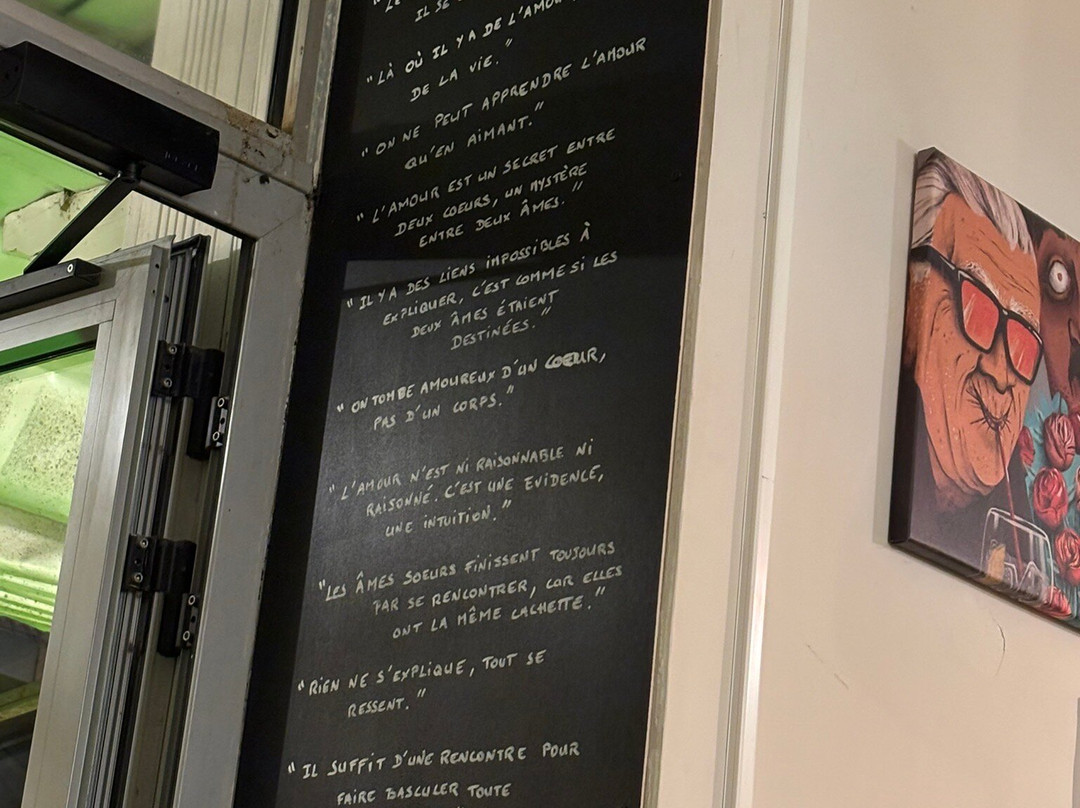 "LE
IL SE
"LÀ OÙ IL Y A DE L'AMOUR
DE LA VIE."
"ON NE PEUT APPRENDRE L'AMOUR
QU'EN AIMANT."
"L'AMOUR EST UN SECRET ENTRE
DEUX COEURS, UN MYSTÈRE
ENTRE DEUX ÂMES."
"IL Y A DES LIENS IMPOSSIBLES À
EXPLIQUER, C'EST COMME SI LES
DEUX ÂMES ÉTAIENT
DESTINÉES."
"ON TOMBE AMOUREUX D'UN COEUR,
PAS D'UN CORPS."
"L'AMOUR N'EST NI RAISONNABLE NI
RAISONNÉ. C'EST UNE EVIDENCE,
UNE INTUITION."
"LES ÂMES SOEURS FINISSENT TOUJOURS
PAR SE RENCONTRER, CAR ELLES
ONT LA MÊME CACHETTE."
"RIEN NE S'EXPLIQUE, TOUT SE
RESSENT."
"IL SUFFIT D'UNE RENCONTRE POUR
FAIRE BASCULER TOUTE